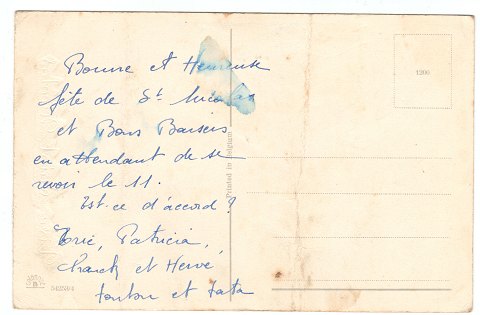 Bonne et Heureuse
fête de St Nicolas
et Bons Baisers
en attendant de se
revoir le 11.
Est-ce d'accord ?
Eric, Patricia,
et Hervé,
tonton et tata
Printed in Belgium
1200